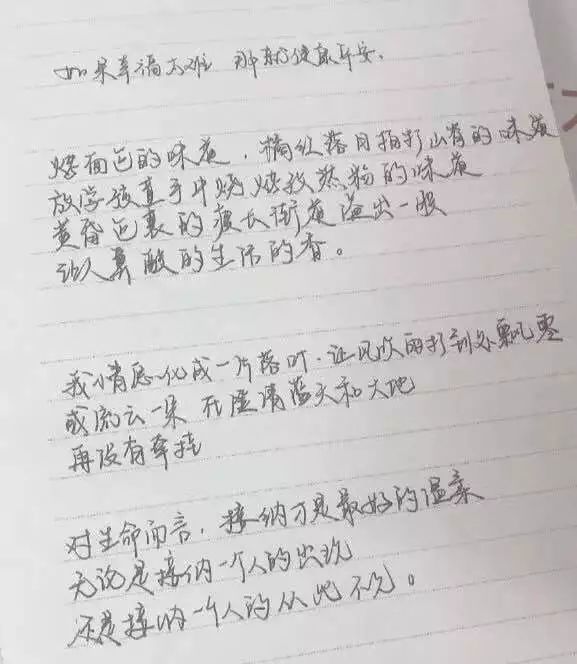 如果幸福太难 那就健康平安.
烤面包的味道,橘红落日拍打山脊的味道
放学孩童手中烧烤孜然粉的味道
黄昏包裹的狭长街道溢出一股
动人鼻酸的生活的香。
我情愿化成一片落叶.让风吹雨打到处飘零
或流云一朵 在澄清蓝天和大地
再没有牵挂
对生命而言,接纳才是最好的温柔
无论是接纳一个人的出现
还是接纳一个人的从此不见。